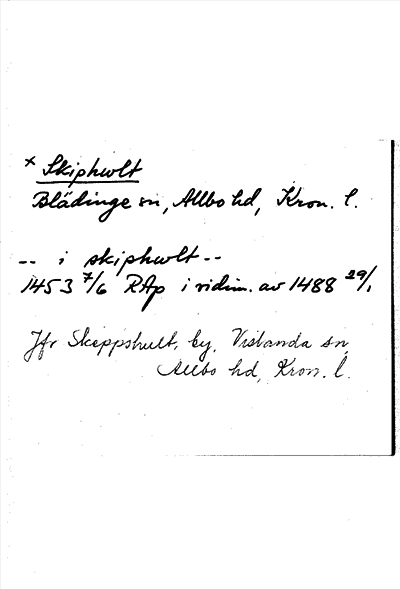 × Skiphwlt
Blädinge sn, Allbo hd, Kron. l.
-- i skiphwlt --
1453 7/6 RAp i vidim. av 1488 29/1
Jfr Skeppshult, by, Vislanda sn,
Allbo hd, Kron. l.